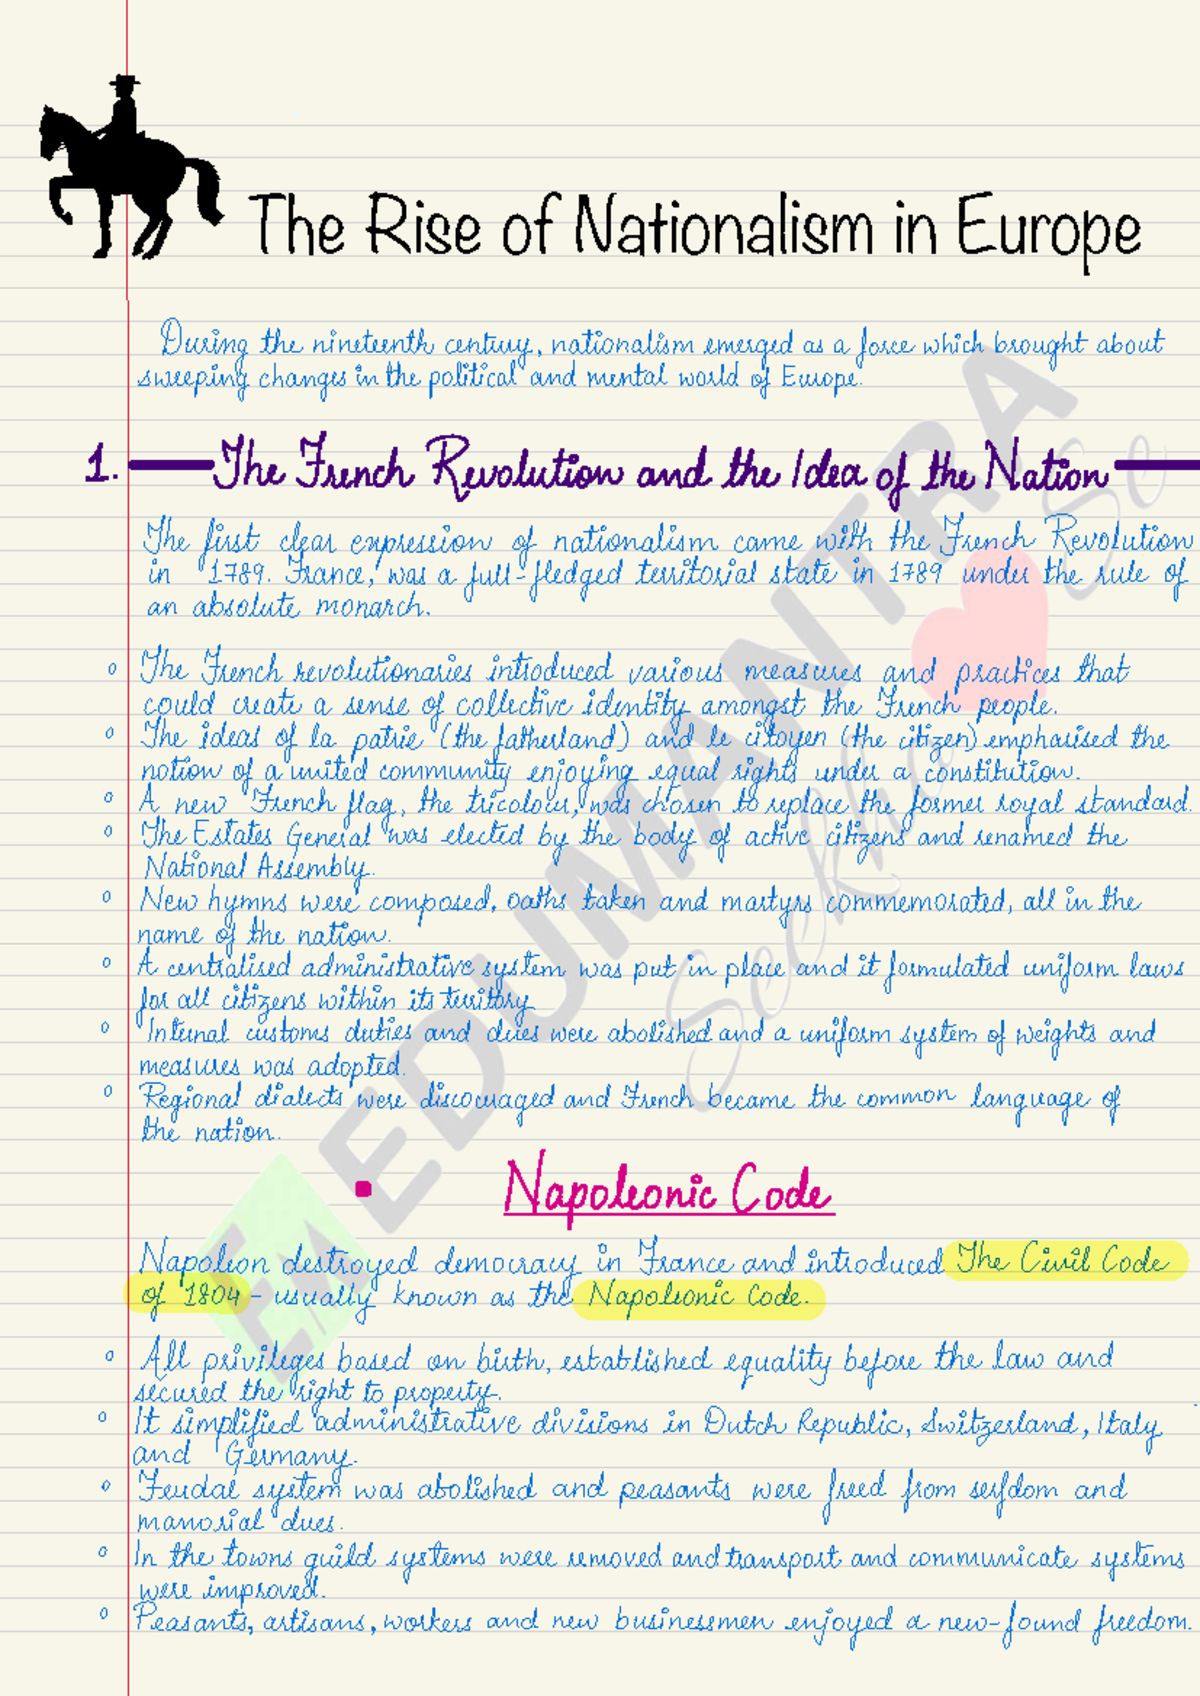 The Rise of Nationalism in Europe
During the nineteenth century, nationalism emerged as a force which brought about
sweeping changes in the political and mental world of Europe.
1. The French Revolution and the Idea of the Nation
The first clear expression of nationalism came with the French Revolution
in 1789. France, was a full-fledged territorial state in 1789 under the rule of
an absolute monarch.
o The French revolutionaries introduced various measures and practices that
could create a sense of collective identity amongst the French people.
o The ideas of la patrie (the fatherland) and le citoyen (the citizen) emphasised the
notion of a united community enjoying equal rights under a constitution.
o A new French flag, the tricolour, was chosen to replace the former royal standard.
o The Estates General was elected by the body of active citizens and renamed the
National Assembly.
o New hymns were composed, oaths taken and martyrs commemorated, all in the
name of the nation.
o A centralised administrative system was put in place and it formulated uniform laws
for all citizens within its territory
o Internal customs duties and dues were abolished and a uniform system of weights and
measures was adopted.
o Regional dialects were discouraged and French became the common language of
the nation.
Napoleonic Code
Napoleon destroyed democracy in France and introduced The Civil Code
of 1804 - usually known as the Napoleonic Code.
o All privileges based on birth, established equality before the law and
secured the right to property.
o It simplified administrative divisions in Dutch Republic, Switzerland, Italy
and Germany.
o Feudal system was abolished and peasants were freed from serfdom and
manorial dues.
o In the towns guild systems were removed and transport and communicate systems
were improved.
o Peasants, artisans, workers and new businessmen enjoyed a new-found freedom.
EM EDUMANTRA
Se Seekho